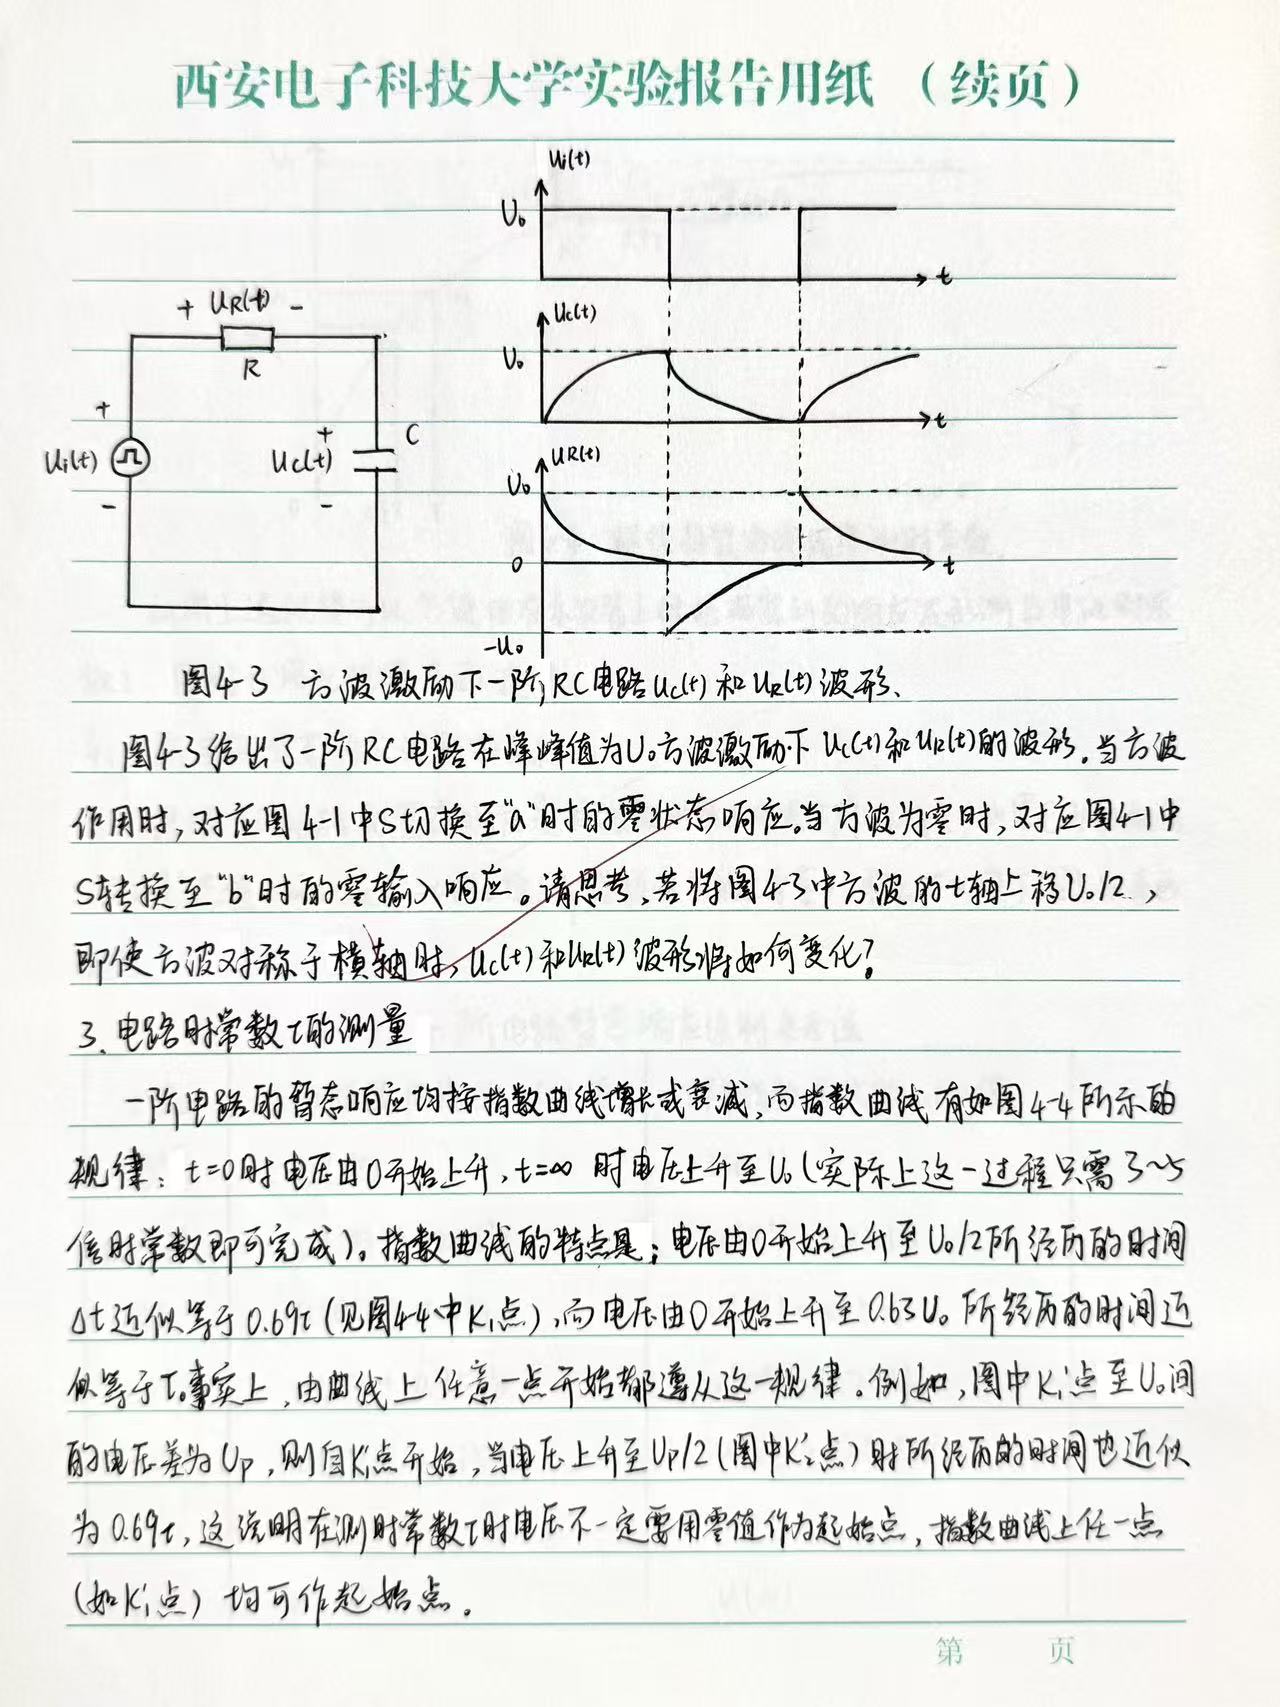 西安电子科技大学实验报告用纸（续页）
Ui(t)
U₀
t
Uc(t)
U₀
t
UR(t)
U₀
0
t
-U₀
+ UR(t) -
R
+
Ui(t)
-
+
Uc(t)
-
C
图4-3 方波激励下一阶RC电路Uc(t)和UR(t)波形.
图4-3给出了一阶RC电路在峰峰值为U₀方波激励下Uc(t)和UR(t)的波形.当方波
作用时,对应图4-1中S切换至"a"时的零状态响应。当方波为零时,对应图4-1中
S转换至"b"时的零输入响应。请思考,若将图4-3中方波的t轴上移U₀/2,
即使方波对称于横轴时,Uc(t)和UR(t)波形将如何变化?
3.电路时常数τ的测量
一阶电路的暂态响应均按指数曲线增长或衰减,而指数曲线有如图4-4所示的
规律:t=0时电压由0开始上升,t=∞时电压上升至U₀(实际上这一过程只需3~5
倍时常数即可完成)。指数曲线的特点是:电压由0开始上升至U₀/2所经历的时间
Δt近似等于0.69τ(见图4-4中K₁点),而电压由0开始上升至0.63U₀所经历的时间近
似等于τ。事实上,由曲线上任意一点开始都遵从这一规律。例如,图中K₁'点至U₀间
的电压差为Up,则自K₁'点开始,当电压上升至Up/2(图中K₂'点)时所经历的时间也近似
为0.69τ,这说明在测时常数τ时电压不一定要用零值作为起始点,指数曲线上任一点
(如K₁'点)均可作起始点.
第 页